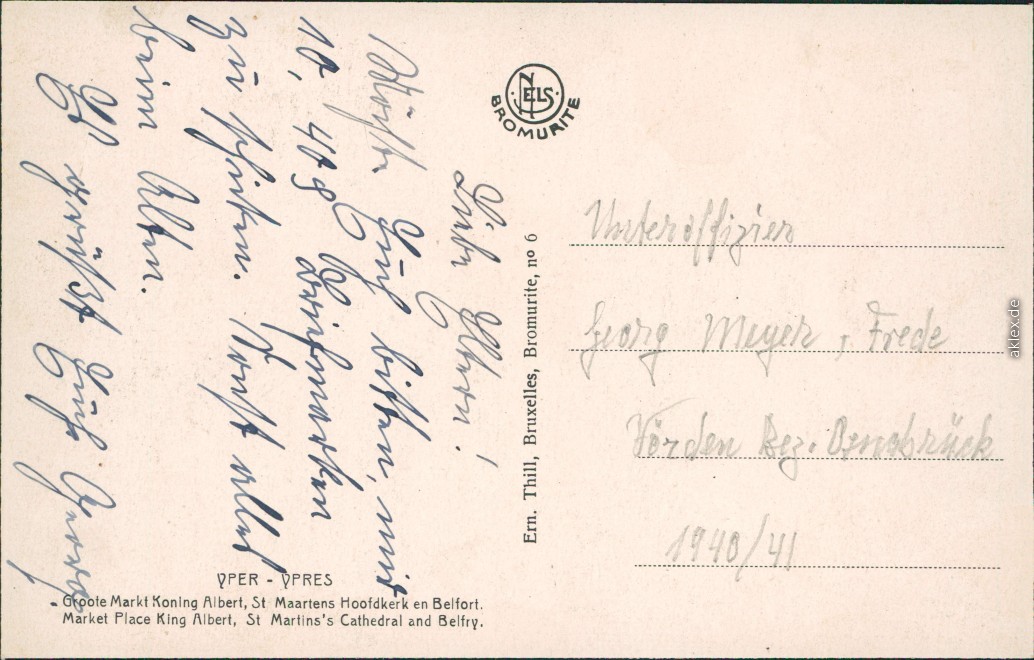 Liebe Eltern!
Möchte Euch bitten, mir
10, 40 g Briefmarken
zu schicken. Sonst alles
beim Alten.
Es grüßt Euch Georg.
NELS
BROMURITE
Ern. Thill, Bruxelles, Bromurite, nº 6
Unteroffizier
Georg Meyer, Frede
Vörden Bez. Osnabrück
1940/41
YPER - YPRES
Groote Markt Koning Albert, St Maartens Hoofdkerk en Belfort.
Market Place King Albert, St Martins's Cathedral and Belfry.
aklex.de